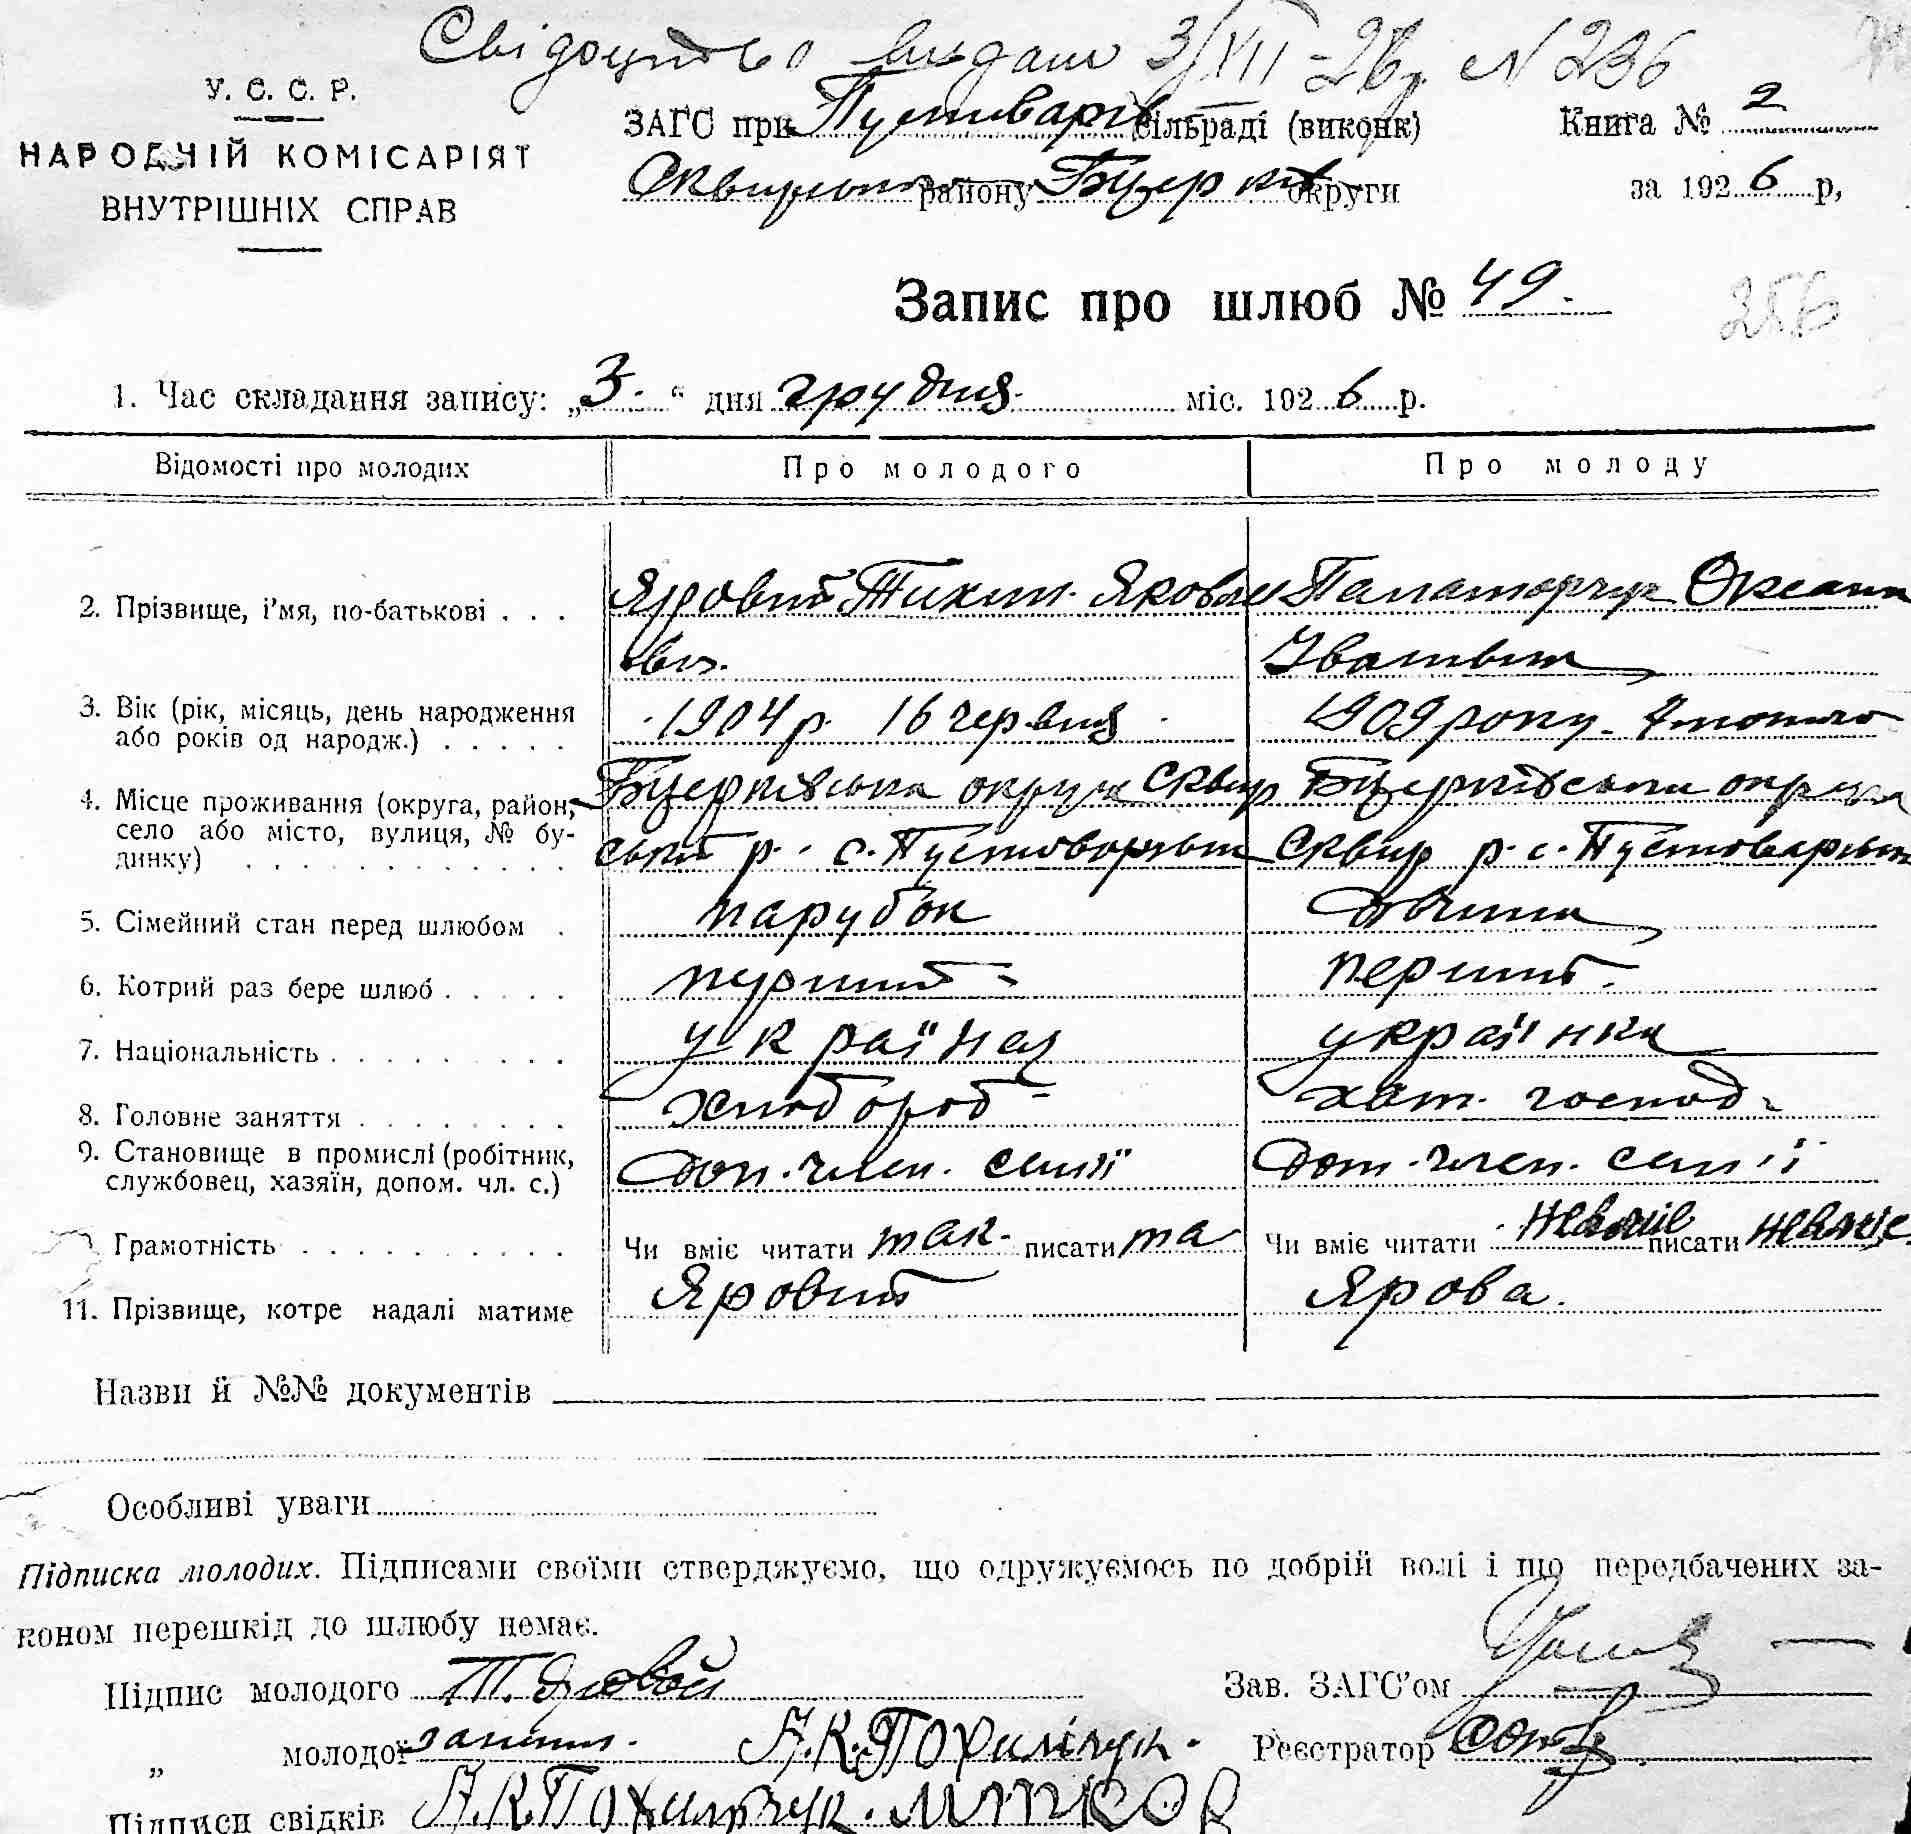 Свідоцтво видано 3/XII-26р. N 236
У. С. С. Р.
НАРОДНІЙ КОМІСАРІЯТ
ВНУТРІШНІХ СПРАВ
ЗАГС при Пустиварів сільраді (виконк) Книга № 2
Сквирськ району Бцерків округи за 1926 р,
Запис про шлюб № 49.
256
1. Час складання запису: „3." дня грудня міс. 1926 р.
Відомості про молодих Про молодого Про молоду
2. Прізвище, і'мя, по-батькові . . . Яровий Тихин Яковле Паламарчук Оксана
вич. Іванівна
3. Вік (рік, місяць, день народження 1904 р 16 червня 1909 року
або років од народж.) . . . . .
4. Місце проживання (округа, район, Бцерківська округа Сквир Бцерківська округа
село або місто, вулиця, № бу- ський р. с. Пустоварівка Сквир р. с. Пустоварівка
динку) . . . . . . . . . . . . .
5. Сімейний стан перед шлюбом . парубок дівчина
6. Котрий раз бере шлюб . . . . . перший перший.
7. Національність . . . . . . . . . українец українка
8. Головне заняття . . . . . . . . хлібороб хат. господ.
9. Становище в промислі (робітник, доп. член. семії доп. член. семії
службовец, хазяїн, допом. чл. с.)
Грамотність . . . . . . . . . . Чи вміє читати так. писати та Чи вміє читати невміє писати невміє.
11. Прізвище, котре надалі матиме Яровий Ярова.
Назви й №№ документів
Особливі уваги
Підписка молодих. Підписами своїми стверджуємо, що одружуємось по добрій волі і що передбачених за-
коном перешкід до шлюбу немає.
Підпис молодого Т. Яровой Зав. ЗАГС'ом
„ молодої А.К. Реєстратор
Підписи свідків А.К.